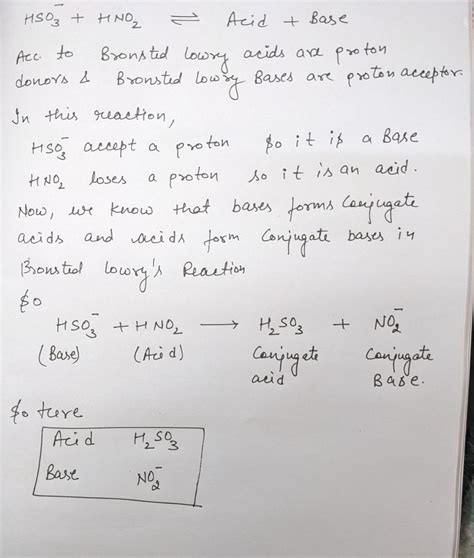 HSO₃⁻ + HNO₂ ⇌ Acid + Base
Acc. to Bronsted lowry acids are proton
donors & Bronsted lowry Bases are proton acceptor.
In this reaction,
HSO₃⁻ accept a proton so it is a Base
HNO₂ loses a proton so it is an acid.
Now, we know that bases forms Conjugate
acids and acids form Conjugate bases in
Bronsted lowry's Reaction
So
HSO₃⁻ + HNO₂ → H₂SO₃ + NO₂⁻
(Base) (Acid) Conjugate acid Conjugate Base.
So here
Acid H₂SO₃
Base NO₂⁻